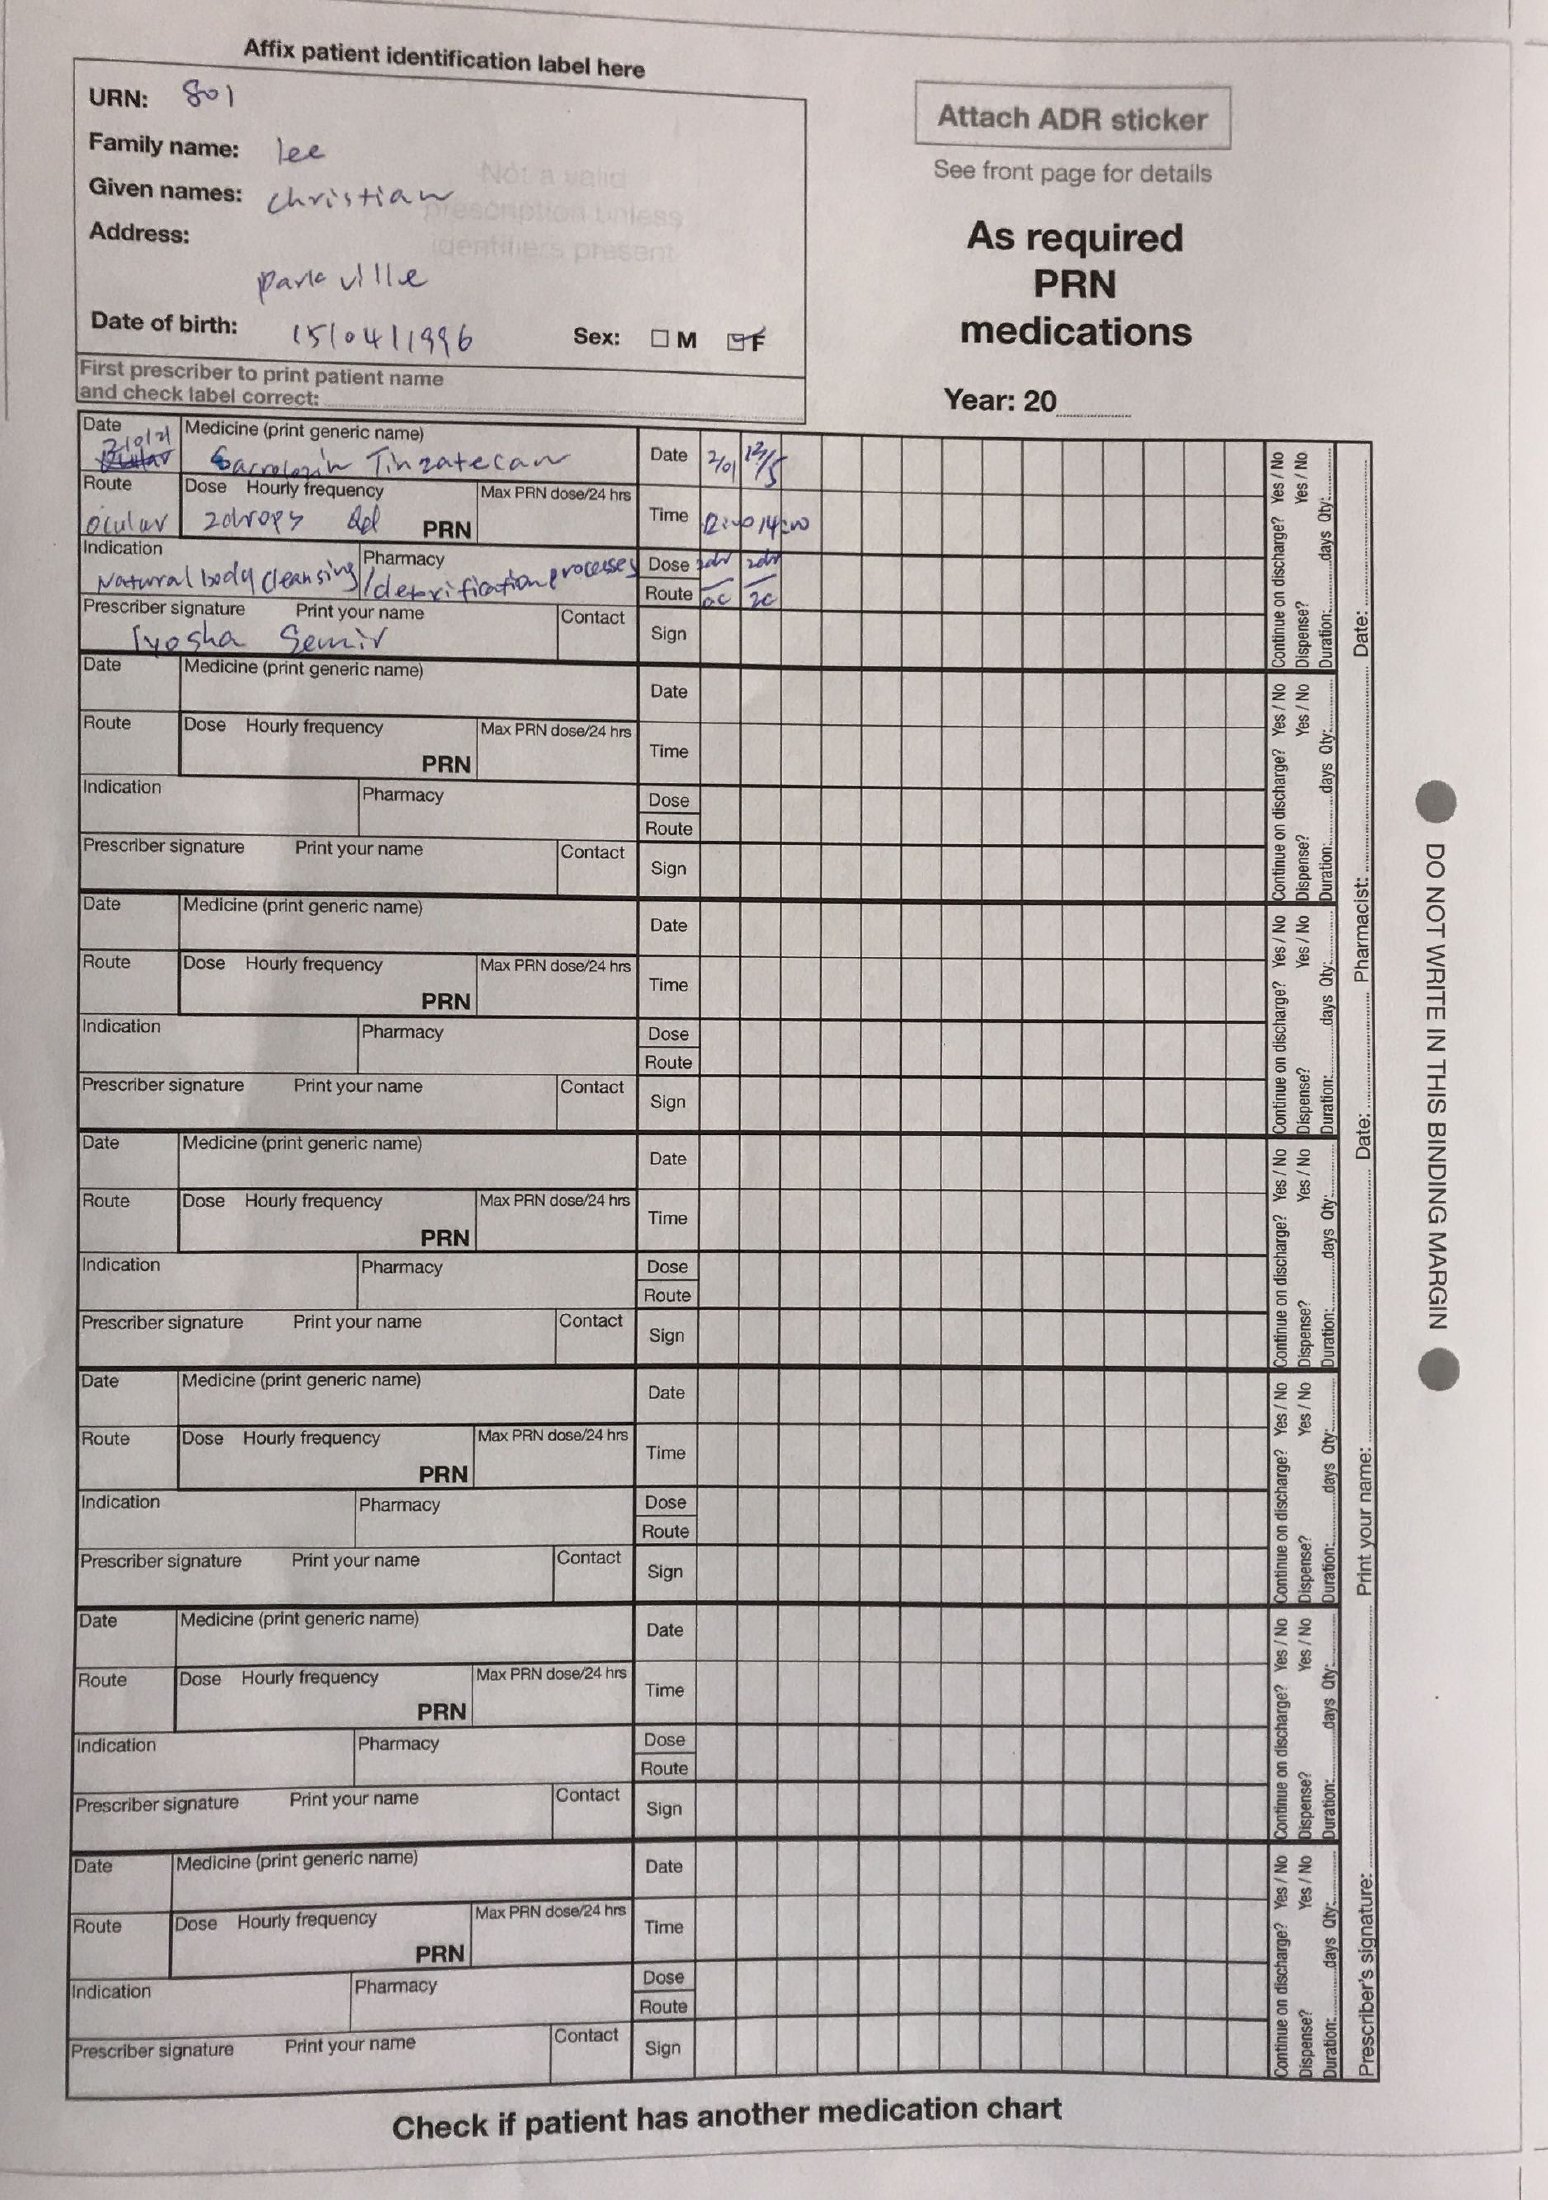 Affix patient identification label here
URN: 801
Family name: lee
Given names: christian
Not a valid
prescription unless
identifiers present
Address:
parkville
Date of birth: 15/04/1996 Sex: M F
First prescriber to print patient name
and check label correct:
Attach ADR sticker
See front page for details
As required
PRN
medications
Year: 20
Date Medicine (print generic name) Date 2/01 12/5
Tinzatecan
Route Dose Hourly frequency PRN Max PRN dose/24 hrs Time
ocular 2drops
Indication Pharmacy Dose 2dr 2dr
Natural body cleansing/detoxification processes
Route oc
Prescriber signature Print your name Contact Sign
Iyosha Semir
Continue on discharge? Yes / No
Dispense? Yes / No
Duration: days Qty:
Date Medicine (print generic name) Date
Route Dose Hourly frequency PRN Max PRN dose/24 hrs Time
Indication Pharmacy Dose
Route
Prescriber signature Print your name Contact Sign
Continue on discharge? Yes / No
Dispense? Yes / No
Duration: days Qty:
Date Medicine (print generic name) Date
Route Dose Hourly frequency PRN Max PRN dose/24 hrs Time
Indication Pharmacy Dose
Route
Prescriber signature Print your name Contact Sign
Continue on discharge? Yes / No
Dispense? Yes / No
Duration: days Qty:
Date Medicine (print generic name) Date
Route Dose Hourly frequency PRN Max PRN dose/24 hrs Time
Indication Pharmacy Dose
Route
Prescriber signature Print your name Contact Sign
Continue on discharge? Yes / No
Dispense? Yes / No
Duration: days Qty:
Date Medicine (print generic name) Date
Route Dose Hourly frequency PRN Max PRN dose/24 hrs Time
Indication Pharmacy Dose
Route
Prescriber signature Print your name Contact Sign
Continue on discharge? Yes / No
Dispense? Yes / No
Duration: days Qty:
Date Medicine (print generic name) Date
Route Dose Hourly frequency PRN Max PRN dose/24 hrs Time
Indication Pharmacy Dose
Route
Prescriber signature Print your name Contact Sign
Continue on discharge? Yes / No
Dispense? Yes / No
Duration: days Qty:
Date Medicine (print generic name) Date
Route Dose Hourly frequency PRN Max PRN dose/24 hrs Time
Indication Pharmacy Dose
Route
Prescriber signature Print your name Contact Sign
Continue on discharge? Yes / No
Dispense? Yes / No
Duration: days Qty:
Prescriber's signature: Print your name: Date: Pharmacist: Date:
DO NOT WRITE IN THIS BINDING MARGIN
Check if patient has another medication chart